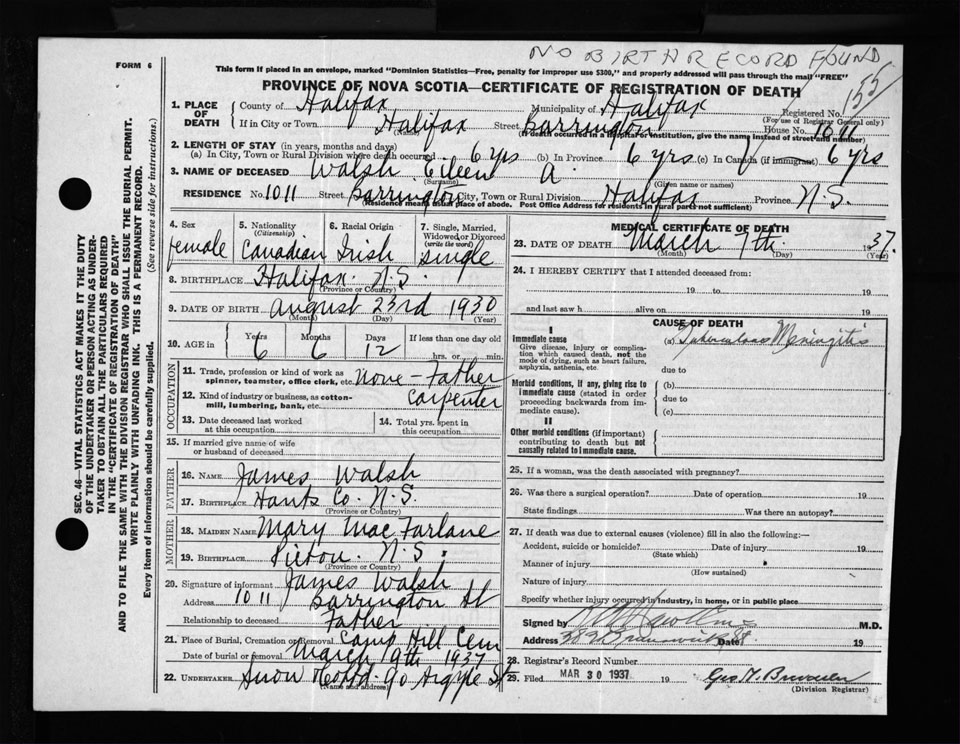 NO BIRTH RECORD FOUND
FORM 6
This form if placed in an envelope, marked "Dominion Statistics—Free, penalty for improper use $300," and properly addressed will pass through the mail "FREE"
155
PROVINCE OF NOVA SCOTIA—CERTIFICATE OF REGISTRATION OF DEATH
SEC. 46—VITAL STATISTICS ACT MAKES IT THE DUTY
OF THE UNDERTAKER OR PERSON ACTING AS UNDER-
TAKER TO OBTAIN ALL THE PARTICULARS REQUIRED
IN THE "CERTIFICATE OF REGISTRATION OF DEATH"
AND TO FILE THE SAME WITH THE DIVISION REGISTRAR WHO SHALL ISSUE THE BURIAL PERMIT.
WRITE PLAINLY WITH UNFADING INK. THIS IS A PERMANENT RECORD.
Every item of information should be carefully supplied. (See reverse side for instructions.)
1. PLACE OF DEATH County of Halifax Municipality of Halifax Registered No.
(For use of Registrar General only)
If in City or Town Halifax Street Barrington House No. 1011
(If death occurred in a hospital or institution, give the name instead of street and number)
2. LENGTH OF STAY (in years, months and days)
(a) In City, Town or Rural Division where death occurred 6 yrs (b) In Province 6 yrs (c) In Canada (if immigrant) 6 yrs
3. NAME OF DECEASED Walsh Eileen A.
(Surname) (Given name or names)
RESIDENCE No. 1011 Street Barrington City, Town or Rural Division Halifax Province N.S.
(Residence means usual place of abode. Post Office Address for residents in rural parts not sufficient)
4. Sex
female
5. Nationality (Citizenship)
Canadian
6. Racial Origin
Irish
7. Single, Married, Widowed or Divorced (write the word)
single
8. BIRTHPLACE Halifax N.S.
(Province or Country)
9. DATE OF BIRTH August 23rd 1930
(Month) (Day) (Year)
10. AGE in Years Months Days If less than one day old
6 6 12 hrs. or min.
OCCUPATION
11. Trade, profession or kind of work as spinner, teamster, office clerk, etc. None - Father
12. Kind of industry or business, as cotton-mill, lumbering, bank, etc. carpenter
13. Date deceased last worked at this occupation
14. Total yrs. spent in this occupation
15. If married give name of wife or husband of deceased
FATHER
16. NAME James Walsh
17. BIRTHPLACE Hants Co. N.S.
(Province or Country)
MOTHER
18. MAIDEN NAME Mary MacFarlane
19. BIRTHPLACE Pictou N.S.
(Province or Country)
20. Signature of informant James Walsh
Address 1011 Barrington St
Relationship to deceased Father
21. Place of Burial, Cremation or Removal Camp Hill Cem
Date of burial or removal March 9th 1937
22. UNDERTAKER Snow 90 Argyle St
(Name and address)
MEDICAL CERTIFICATE OF DEATH
23. DATE OF DEATH March 7th 1937.
(Month) (Day) (Year)
24. I HEREBY CERTIFY that I attended deceased from:
19 to 19
and last saw h alive on 19
CAUSE OF DEATH
I
Immediate cause
Give disease, injury or complication which caused death, not the mode of dying, such as heart failure, asphyxia, asthenia, etc.
(a) Tuberculous Meningitis
due to
Morbid conditions, if any, giving rise to immediate cause (stated in order proceeding backwards from immediate cause).
(b)
due to
(c)
II
Other morbid conditions (if important) contributing to death but not causally related to immediate cause.
25. If a woman, was the death associated with pregnancy?
26. Was there a surgical operation? Date of operation 19
State findings Was there an autopsy?
27. If death was due to external causes (violence) fill in also the following:—
Accident, suicide or homicide? Date of injury 19
(State which)
Manner of injury
(How sustained)
Nature of injury
Specify whether injury occurred in industry, in home, or in public place
Signed by M.D.
Address 382 Brunswick St Date 19
28. Registrar's Record Number
29. Filed MAR 30 1937 19
(Division Registrar)